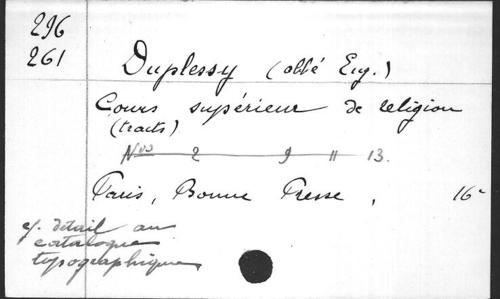 296
261
Duplessy (abbé Eug.)
Cours supérieur de religion
(tracts)
Nos 2 9 11 13.
Paris, Bonne Presse, 16°
cf. détail au
catalogue
typographique